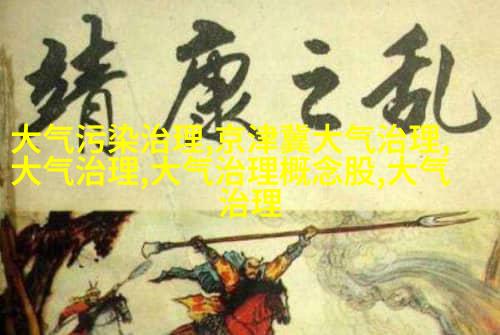 靖康之乱
大气污染治理,京津冀大气治理,
大气治理,大气治理概念股,大气
治理